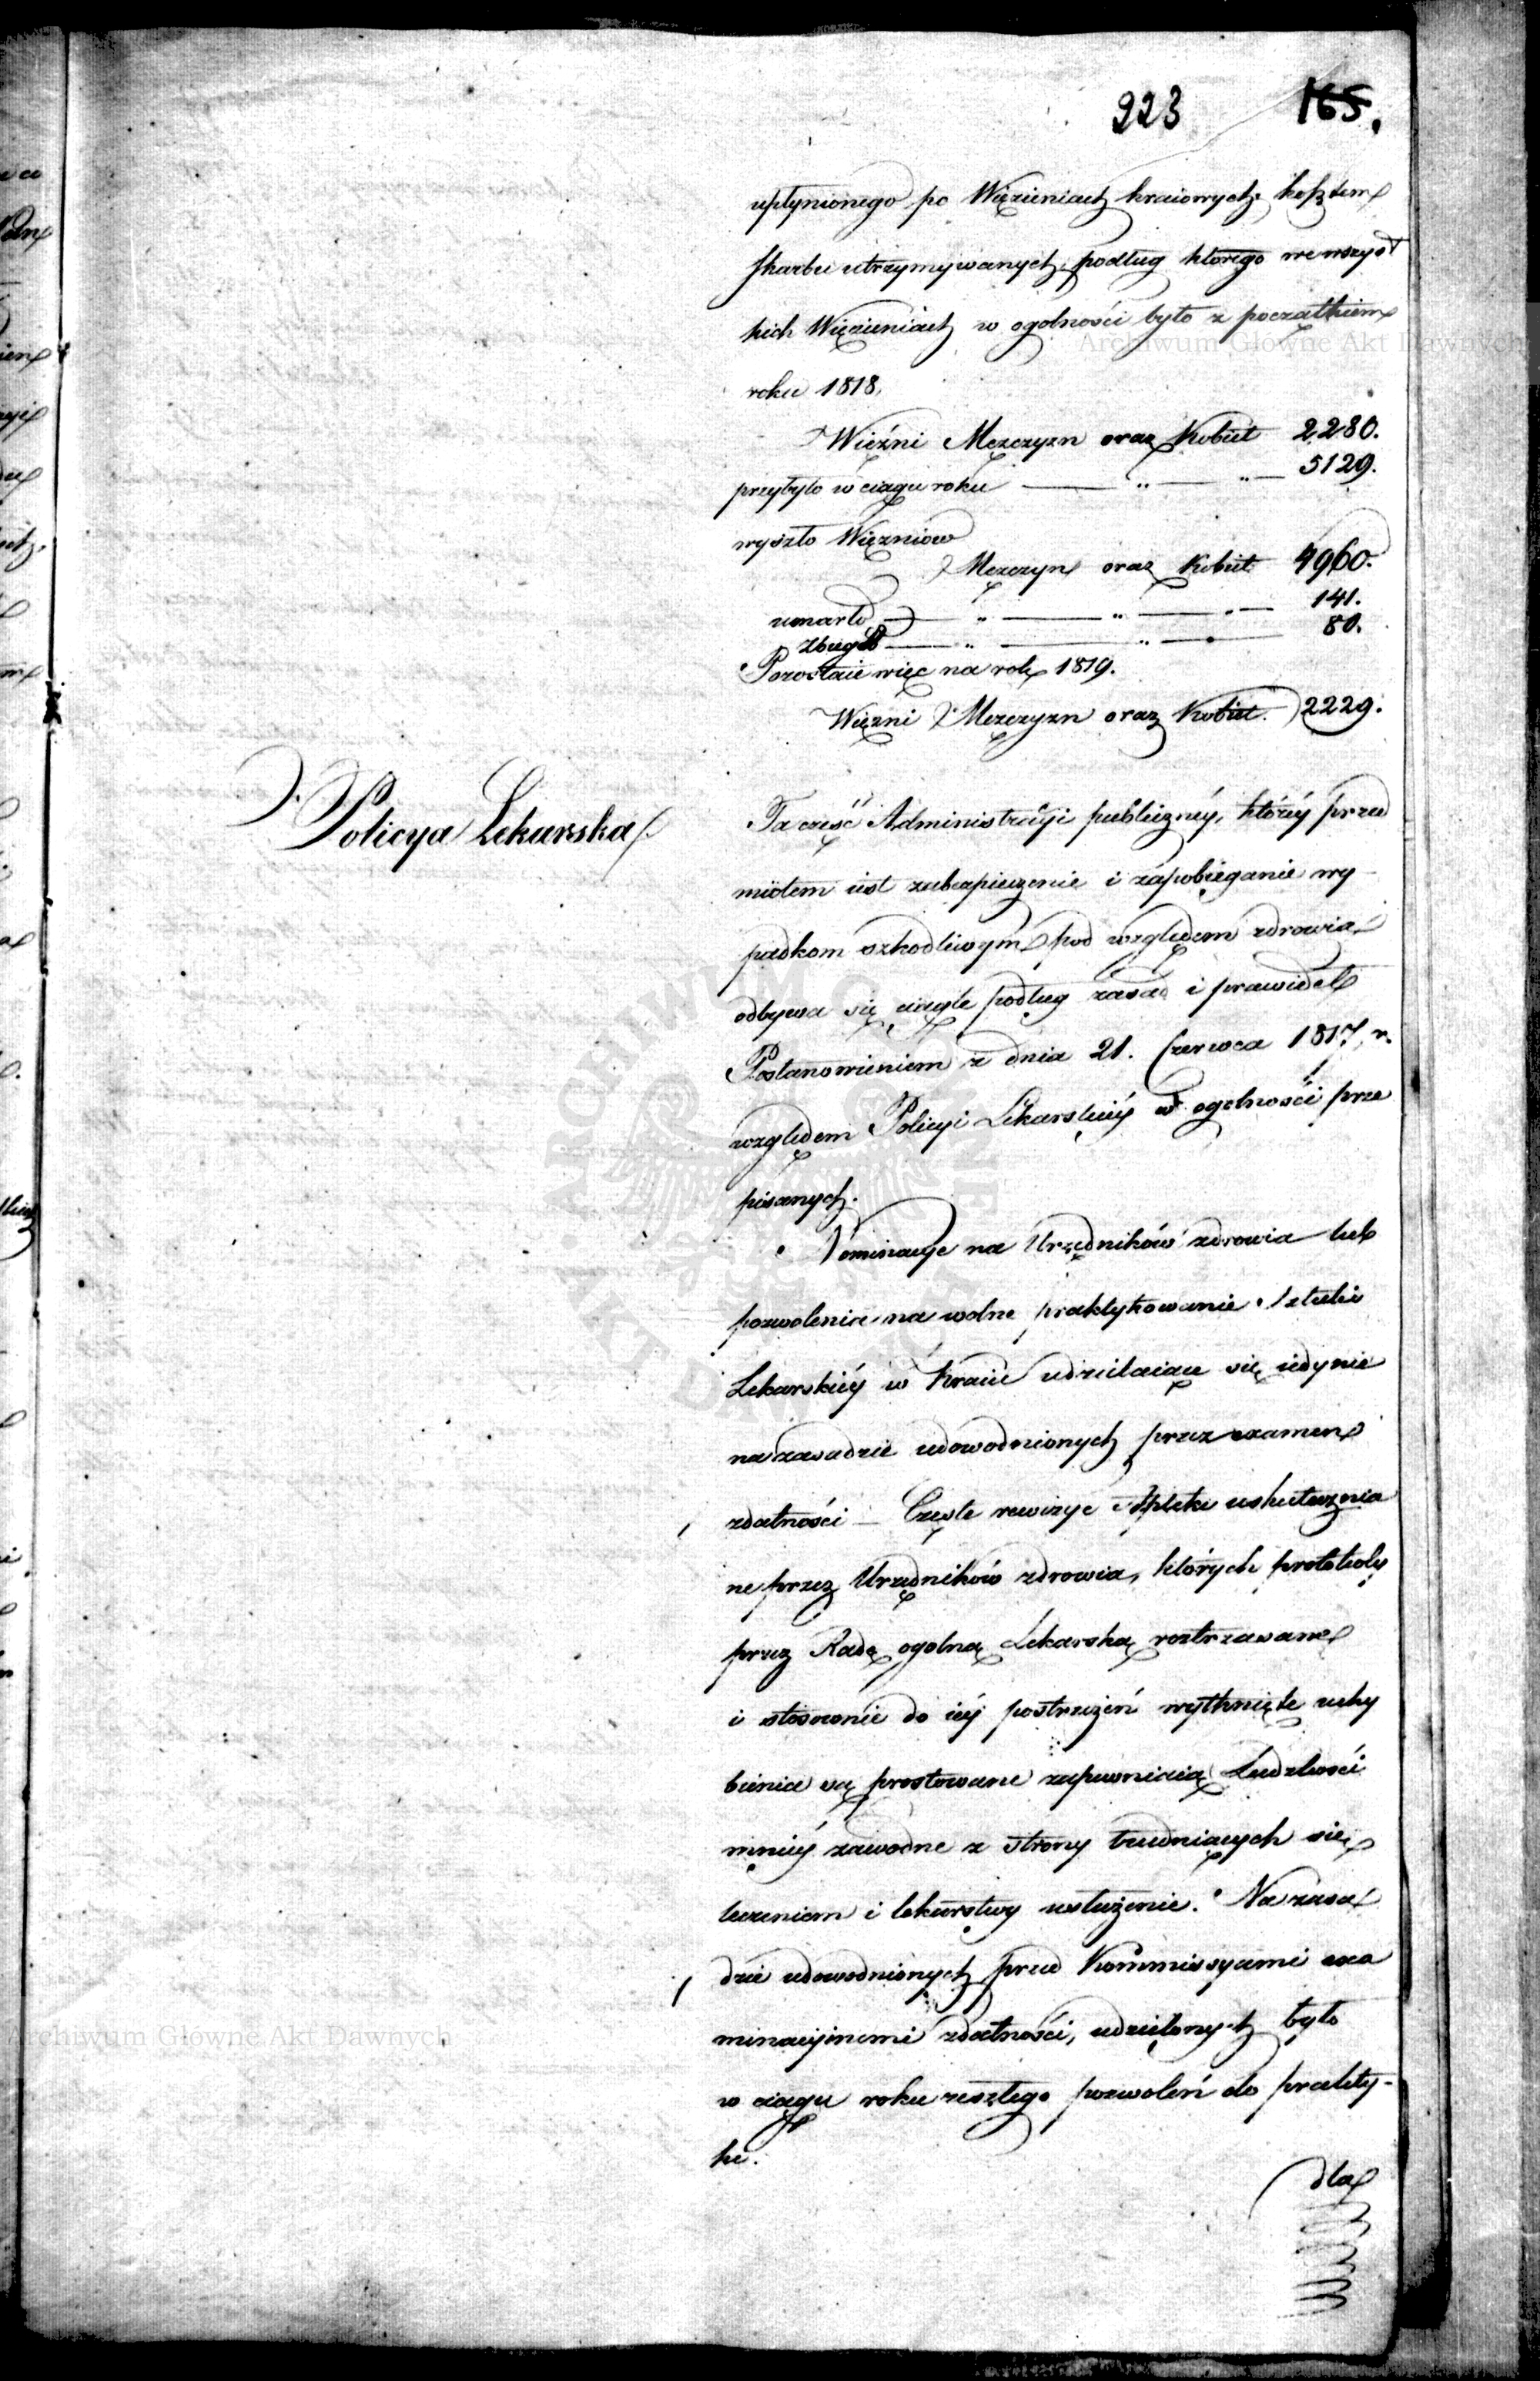 223 165.
upłynionego po Więzieniach kraiowych, kosztem
skarbu utrzymywanych, podług ktorego we wszyst
kich Więzieniach w ogolności było z początkiem
roku 1818.
Więźni Męzczyzn oraz Kobiet 2280.
przybyło w ciągu roku — " — " — 5129.
wyszło Więzniow
Męzczyn oraz Kobiet 4960.
umarło — " — " — " — 141.
zbiegło — " — " — 80.
Pozostaie więc na rok 1819.
Więzni Męzczyzn oraz Kobiet. 2229.
Policya Lekarska.
Ta część Administracyi publiczney, ktorey przed
miotem iest zabezpieczenie i zapobieganie wy-
padkom szkodliwym pod względem zdrowia
odbywa się ciągle podług zasad i prawideł
Postanowieniem z dnia 21. Czerwca 1817. r.
względem Policyi Lekarskiey w ogolności prze
pisanych.
Nominacye na Urzędników zdrowia lub
pozwolenia na wolne praktykowanie Sztuki
Lekarskiey w Kraiu udzielaiące się iedynie
na zasadzie udowodnionych przez examen
zdatności — Częste rewizye Aptek uskutecznia
ne przez Urzędników zdrowia, których protokoły
przez Radę ogolną Lekarską roztrząsane
i stosownie do iey postrzeżeń wytknięte uchy
bienia są prostowane zapewniaią Ludzkości
mniey zawodne z strony trudniących się
leczeniem i lekarstwy usłużenie. Na zasa
dzie udowodnionych przed Kommissyami exa
minacyinemi zdatności, udzielonych było
w ciągu roku zeszłego pozwoleń do prakty-
ki.
dla
Archiwum Główne Akt Dawnych
Archiwum Główne Akt Dawnych
ARCHIWUM GŁÓWNE AKT DAWNYCH